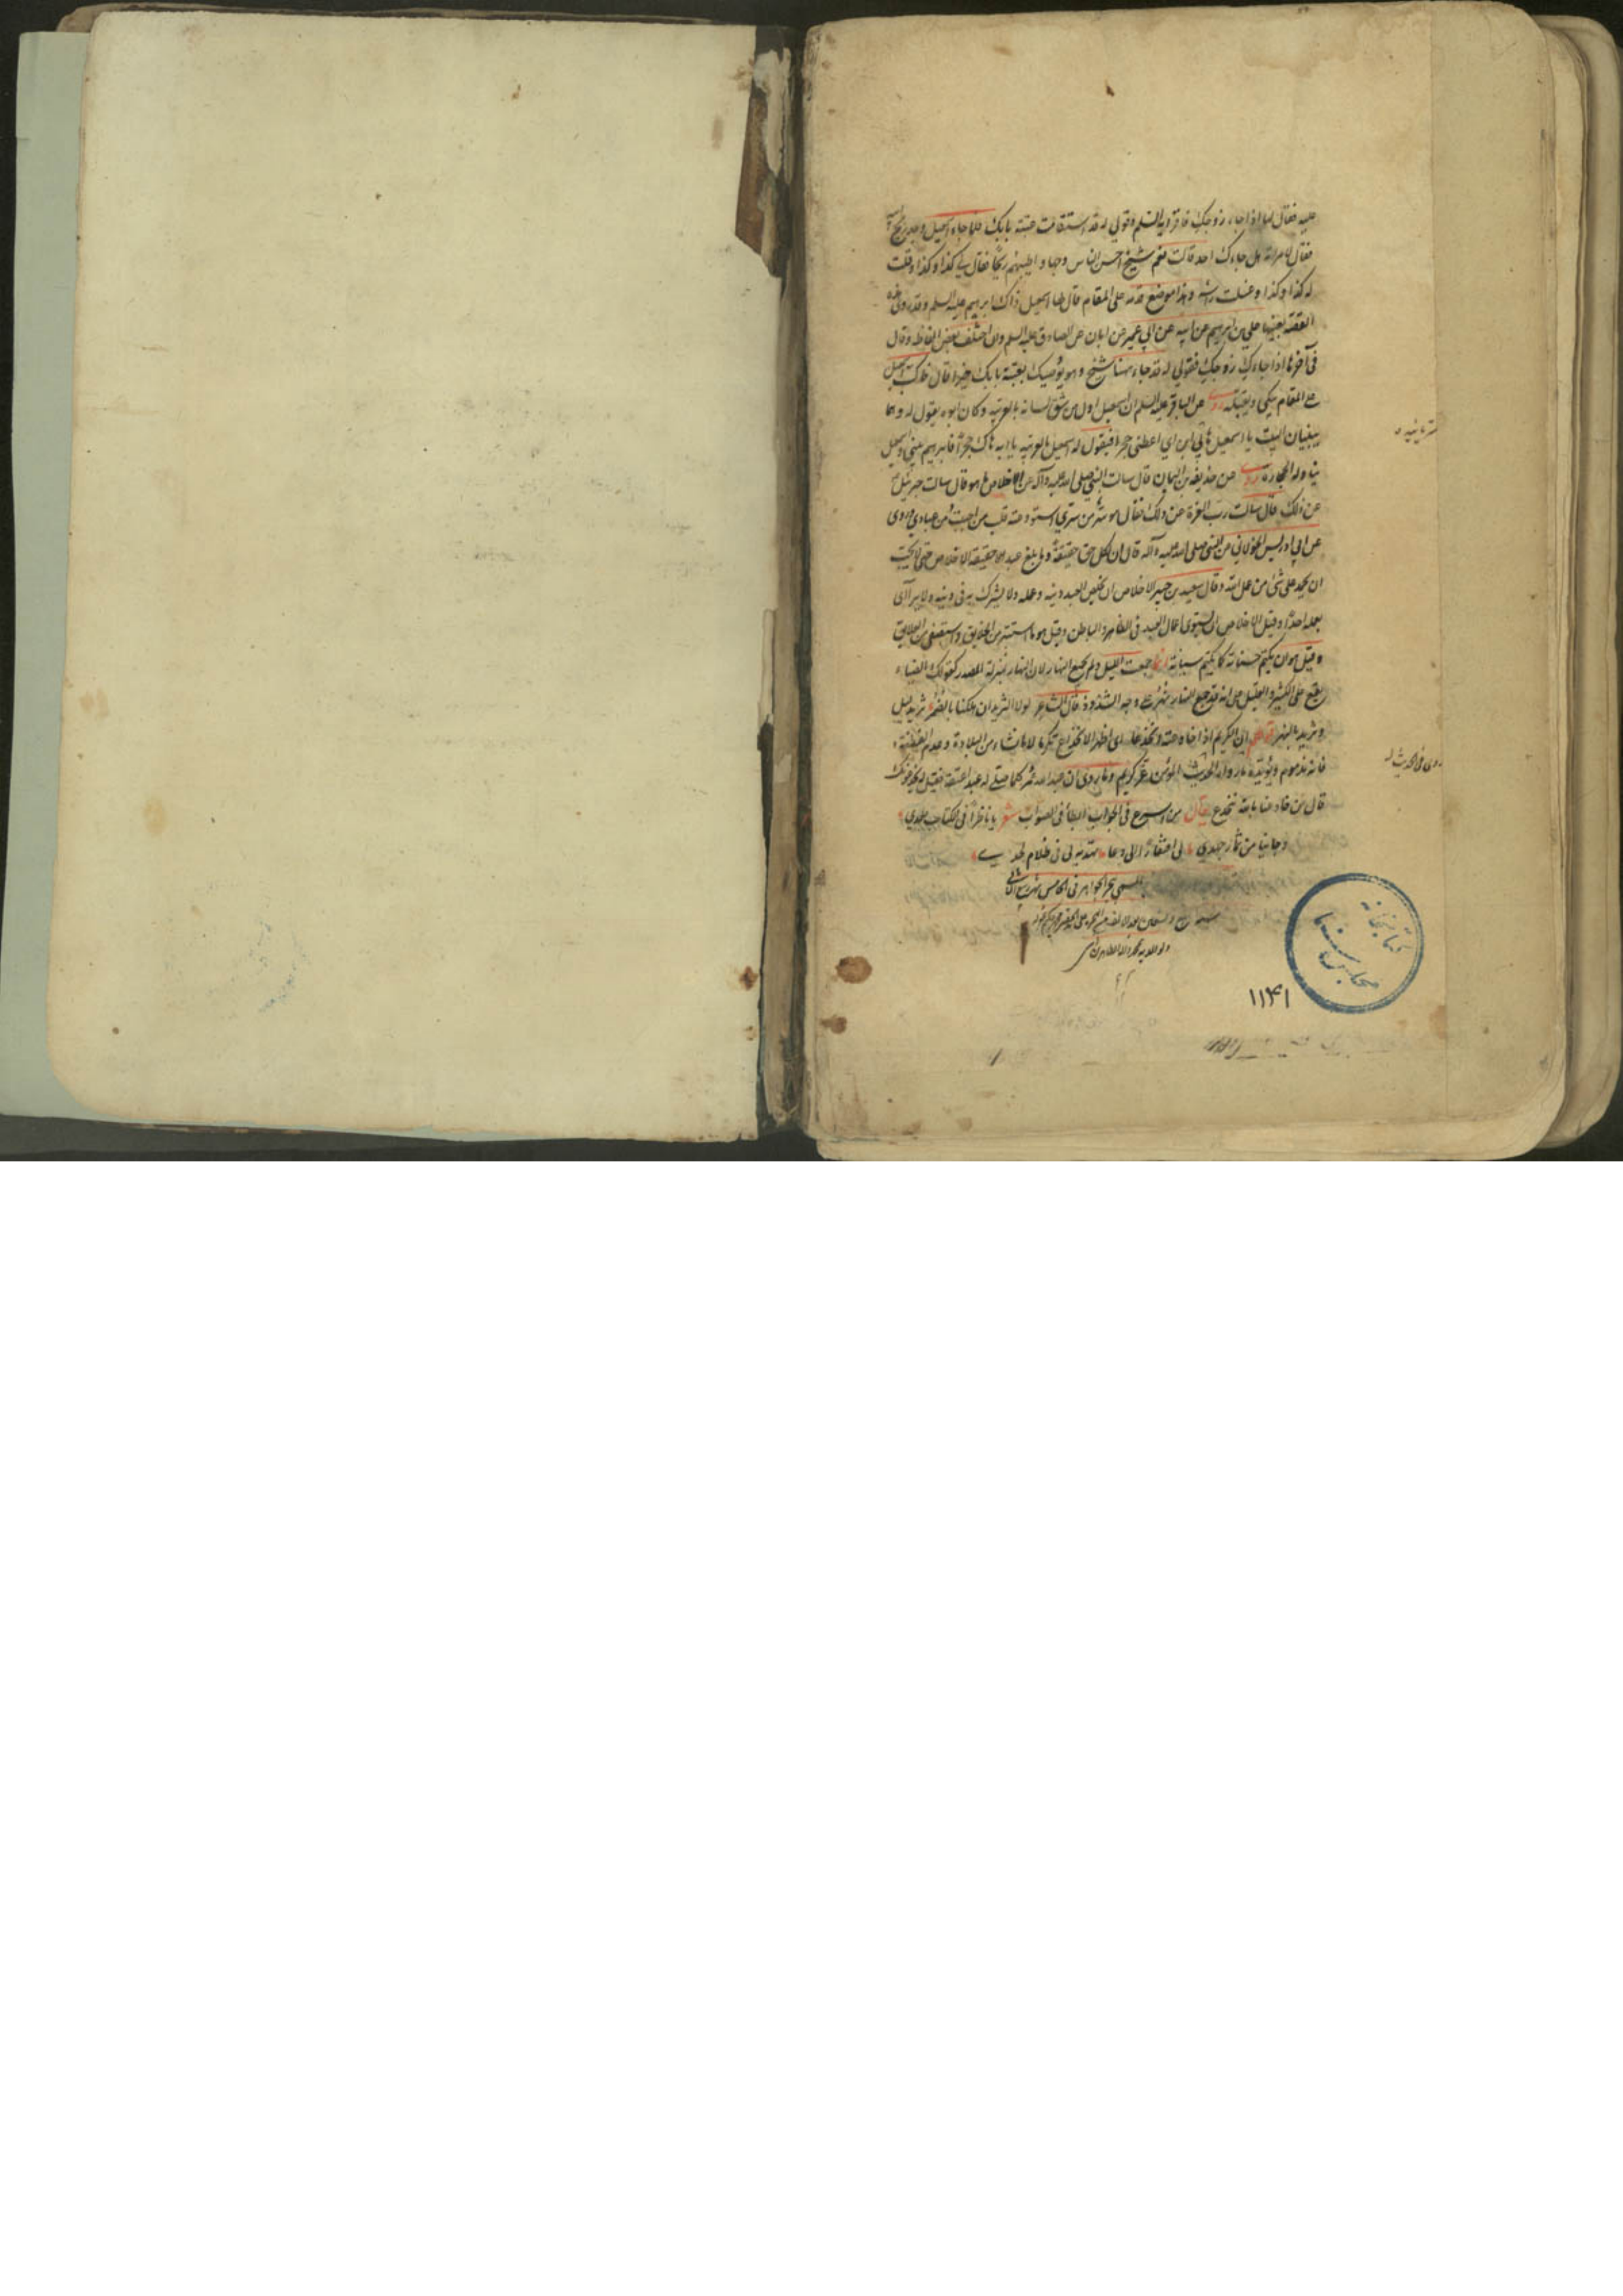 عليه فقال لها اذا جاء زوجك فاقرءيه السلم وقولي له قد استقامت عتبة بابك فلما جاء اسمعيل وجد ريح ابيه
فقال لامراته هل جاءك احد قالت نعم شيخ احسن الناس وجها واطيبهم ريحا فقال لي كذا وكذا وقلت
له كذا وكذا وغسلت راسه وهذا موضع قدمه على المقام قال لها اسمعيل ذاك ابراهيم عليه السلم وقد روى هذه
القصة بعينها علي بن ابراهيم عن ابيه عن ابي عمير عن ابان عن الصادق عليه السلم وان اختلف بعض الفاظه وقال
في آخرها اذا جاءك زوجك فقولي له قد جاء ههنا شيخ وهو يوصيك بعتبة بابك خيرا قال فاكب اسمعيل
على المقام يبكي ويقبله روى عن الباقر عليه السلم ان اسمعيل اول من شق لسانه بالعربية وكان ابوه يقول له وهما
يبنيان البيت يا اسمعيل هابي ابن اي اعطني حجرا فيقول له اسمعيل بالعربية يا ابه هاك حجرا فابراهيم يبني واسمعيل
يناوله الحجارة روى عن حذيفة بن اليمان قال سالت النبي صلى الله عليه وآله عن الاخلاص ما هو قال سالت جبرئيل
عن ذلك قال سالت رب العزة عن ذلك فقال هو سر من سري استودعته قلب من احببت من عبادي وروى
عن ابي ادريس الخولاني عن النبي صلى الله عليه وآله قال ان لكل حق حقيقة وما بلغ عبد حقيقة الاخلاص حتى لا يحب
ان يحمد على شئ من عمل الله وقال سعيد بن جبير الاخلاص ان يخلص العبد دينه وعمله ولا يشرك به في دينه ولا يرآئى
بعمله احدا وقيل الاخلاص ان تستوى اعمال العبد في الظاهر والباطن وقيل هو ما استتر من الخلايق واستصفى من العلايق
وقيل هو ان يكتم حسناته كما يكتم سيئاته انما جمعت الليل ولم يجمع النهار لان النهار بمنزلة المصدر كقولك الضياء
يقع على الكثير والقليل على انه قد جمع النهار بنهر على وجه الشذوذ قال الشاعر لولا الثريدان هلكنا بالضمر ثريد ليل
وثريد بالنهر ان الكريم اذا خادعته انخدعا اى اظهر الانخداع تكرما لا ما نشاء من البلادة وعدم الفطنة
فانه مذموم ويؤيده ما ورد في الحديث المؤمن غر كريم وما روى ان عبد الله بن عمر كلما صلى له عبد اعتقه فقيل له يخدعونك
قال من خادعنا بالله ننخدع يقال من اسرع في الجواب ابطأ في الصواب شعر يا ناظرا في الكتاب بعدي
وجانيا من ثمار جهدي لى افتقار الى دعاء تهديه لى فى ظلام لحدي
المسمى بحر الجواهر في الخامس شهر ربيع الثاني
ولوالديه بمحمد وآله الطاهرين
روى فى الحديث له
كتابخانه
مجلس سنا
۱۱۴۱